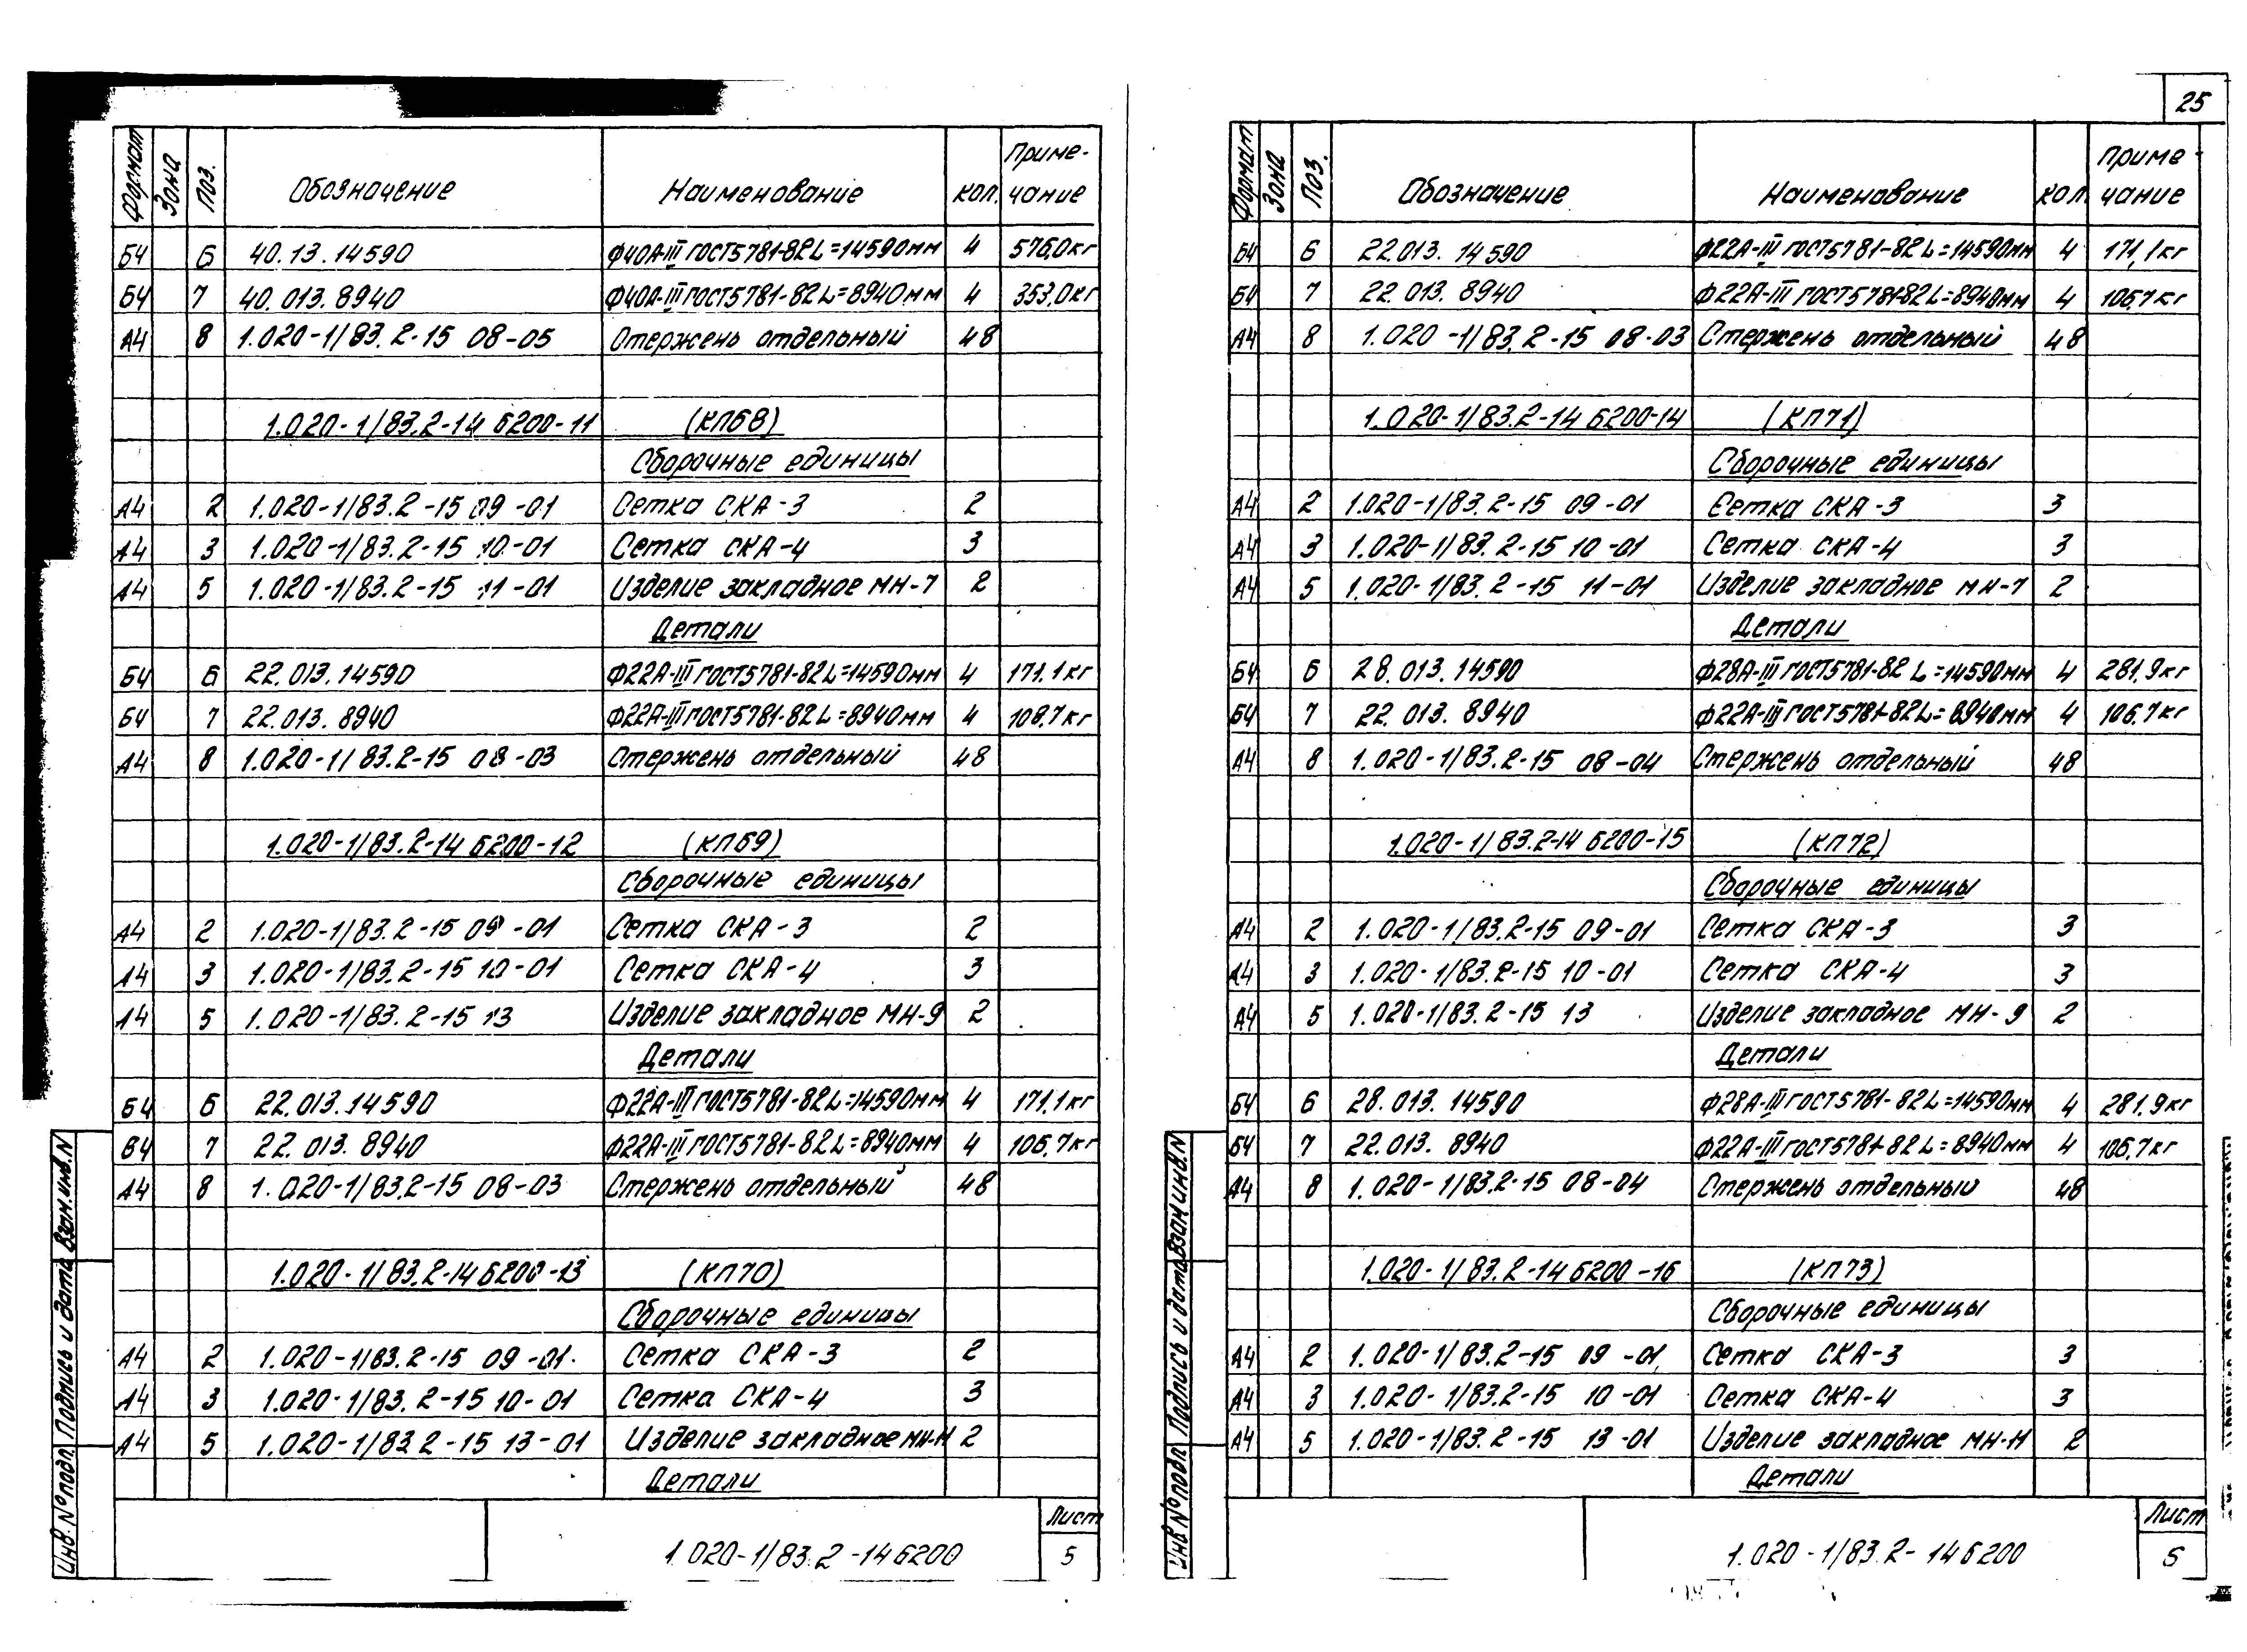 Формат Зона Поз. Обозначение Наименование кол. Приме-
чание
Б4 6 40.13.14590 Ф40А-III ГОСТ5781-82 L=14590мм 4 576,0кг
Б4 7 40.013.8940 Ф40А-III ГОСТ5781-82 L=8940мм 4 353,0кг
А4 8 1.020-1/83.2-15 08-05 Стержень отдельный 48
1.020-1/83.2-14 6200-11 (КП68)
Сборочные единицы
А4 2 1.020-1/83.2-15 09-01 Сетка СКА-3 2
А4 3 1.020-1/83.2-15 10-01 Сетка СКА-4 3
А4 5 1.020-1/83.2-15 11-01 Изделие закладное МН-7 2
Детали
Б4 6 22.013.14590 Ф22А-III ГОСТ5781-82 L=14590мм 4 171.1кг
Б4 7 22.013.8940 Ф22А-III ГОСТ5781-82 L=8940мм 4 106.7кг
А4 8 1.020-1/83.2-15 08-03 Стержень отдельный 48
1.020-1/83.2-14 6200-12 (КП69)
Сборочные единицы
А4 2 1.020-1/83.2-15 09-01 Сетка СКА-3 2
А4 3 1.020-1/83.2-15 10-01 Сетка СКА-4 3
А4 5 1.020-1/83.2-15 13 Изделие закладное МН-9 2
Детали
Б4 6 22.013.14590 Ф22А-III ГОСТ5781-82 L=14590мм 4 171.1кг
Б4 7 22.013.8940 Ф22А-III ГОСТ5781-82 L=8940мм 4 106,7кг
А4 8 1.020-1/83.2-15 08-03 Стержень отдельный 48
1.020-1/83.2-14 6200-13 (КП70)
Сборочные единицы
А4 2 1.020-1/83.2-15 09-01 Сетка СКА-3 2
А4 3 1.020-1/83.2-15 10-01 Сетка СКА-4 3
А4 5 1.020-1/83.2-15 13-01 Изделие закладное МН-11 2
Детали
Инв.№подл. Подпись и дата Взам.инв.N
1.020-1/83.2-14 6200 Лист
5
25
Формат Зона Поз. Обозначение Наименование кол. Приме-
чание
Б4 6 22.013.14590 Ф22А-III ГОСТ5781-82 L=14590мм 4 171,1кг
Б4 7 22.013.8940 Ф22А-III ГОСТ5781-82 L=8940мм 4 106,7кг
А4 8 1.020-1/83.2-15 08-03 Стержень отдельный 48
1.020-1/83.2-14 6200-14 (КП71)
Сборочные единицы
А4 2 1.020-1/83.2-15 09-01 Сетка СКА-3 3
А4 3 1.020-1/83.2-15 10-01 Сетка СКА-4 3
А4 5 1.020-1/83.2-15 11-01 Изделие закладное МН-7 2
Детали
Б4 6 28.013.14590 Ф28А-III ГОСТ5781-82 L=14590мм 4 281,9кг
Б4 7 22.013.8940 Ф22А-III ГОСТ5781-82 L=8940мм 4 106.7кг
А4 8 1.020-1/83.2-15 08-04 Стержень отдельный 48
1.020-1/83.2-14 6200-15 (КП72)
Сборочные единицы
А4 2 1.020-1/83.2-15 09-01 Сетка СКА-3 3
А4 3 1.020-1/83.2-15 10-01 Сетка СКА-4 3
А4 5 1.020-1/83.2-15 13 Изделие закладное МН-9 2
Детали
Б4 6 28.013.14590 Ф28А-III ГОСТ5781-82 L=14590мм 4 281.9кг
Б4 7 22.013.8940 Ф22А-III ГОСТ5781-82 L=8940мм 4 106,7кг
А4 8 1.020-1/83.2-15 08-04 Стержень отдельный 48
1.020-1/83.2-14 6200-16 (КП73)
Сборочные единицы
А4 2 1.020-1/83.2-15 09-01 Сетка СКА-3 3
А4 3 1.020-1/83.2-15 10-01 Сетка СКА-4 3
А4 5 1.020-1/83.2-15 13-01 Изделие закладное МН-11 2
Детали
Инв.№подл. Подпись и дата Взам.инв.N
1.020-1/83.2-14 6200 Лист
5